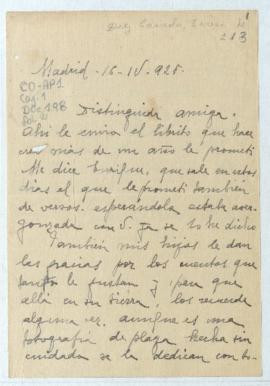 Diez Canedo, Enrique
213
Madrid - 16-IV-925.
CO-AP1
Caj. 1
Doc 198
Distinguida amiga.
Ahí le envía el librito que hace
creo más de un año le prometí
Me dice Enrique, que sale en estos
días el que le prometí también
de versos. esperándola estaba aver-
gonzada con V. ya se lo he dicho
También mis hijas le dan
las gracias por los cuentos que
tanto le gustan y para que
allá en su tierra, los recuerde
alguna vez, aunque es una
fotografía de plaza hecha sin
cuidado se la dedican con to-